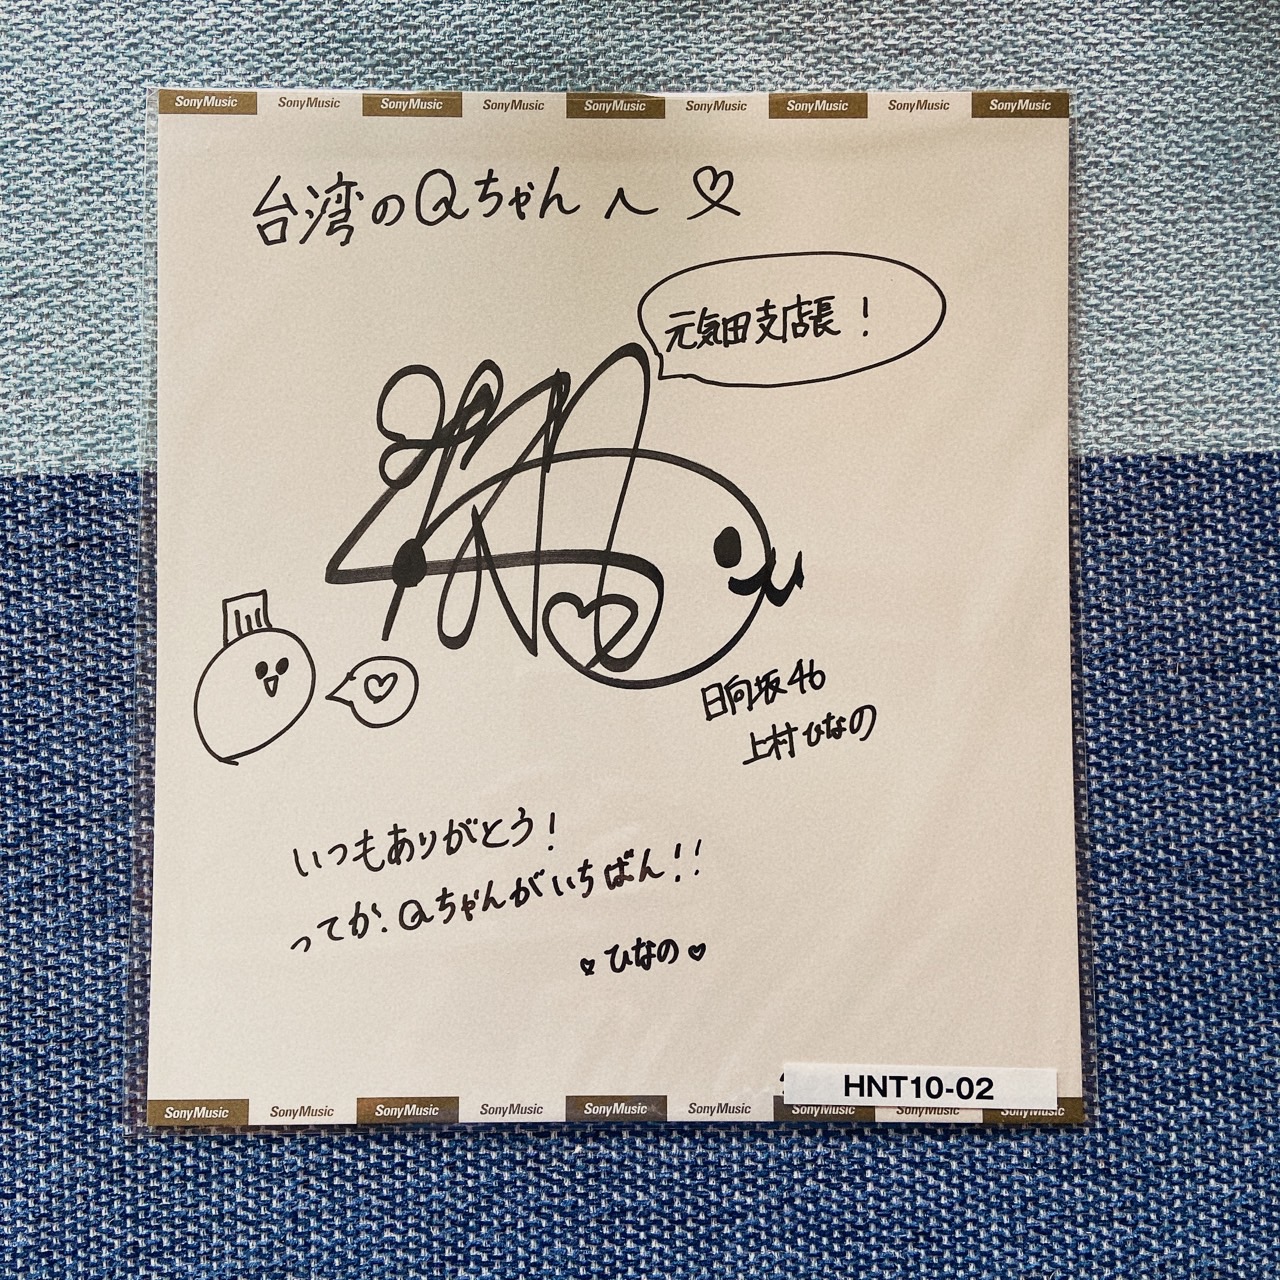 SonyMusic SonyMusic SonyMusic SonyMusic SonyMusic SonyMusic SonyMusic SonyMusic SonyMusic
台湾のQちゃんへ♡
元気田支店長!
日向坂46
上村ひなの
いつもありがとう!
ってか、Qちゃんがいちばん!!
♡ひなの♡
HNT10-02
SonyMusic SonyMusic SonyMusic SonyMusic SonyMusic SonyMusic SonyMusic SonyMusic SonyMusic